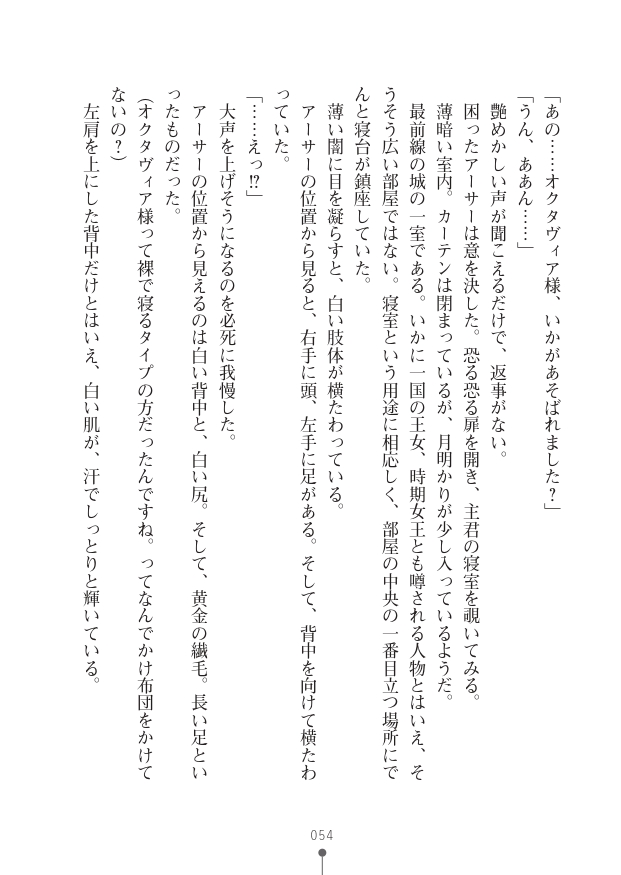 「あの……オクタヴィア様、いかがあそばれました？」
「うん、ああん……」
艶めかしい声が聞こえるだけで、返事がない。
困ったアーサーは意を決した。恐る恐る扉を開き、主君の寝室を覗いてみる。
薄暗い室内。カーテンは閉まっているが、月明かりが少し入っているようだ。
最前線の城の一室である。いかに一国の王女、時期女王とも噂される人物とはいえ、そ
うそう広い部屋ではない。寝室という用途に相応しく、部屋の中央の一番目立つ場所にで
んと寝台が鎮座していた。
薄い闇に目を凝らすと、白い肢体が横たわっている。
アーサーの位置から見ると、右手に頭、左手に足がある。そして、背中を向けて横たわ
っていた。
「……えっ!?」
大声を上げそうになるのを必死に我慢した。
アーサーの位置から見えるのは白い背中と、白い尻。そして、黄金の繊毛。長い足とい
ったものだった。
（オクタヴィア様って裸で寝るタイプの方だったんですね。ってなんでかけ布団をかけて
ないの？）
左肩を上にした背中だけとはいえ、白い肌が、汗でしっとりと輝いている。
054